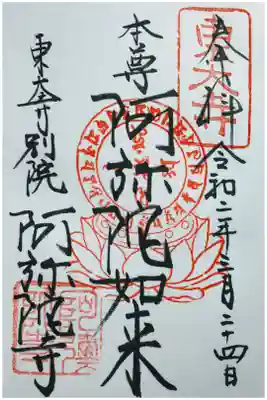 奉拝 令和二年三月二十四日
東大寺
本尊
阿弥陀如来
東大寺別院
阿弥陀寺